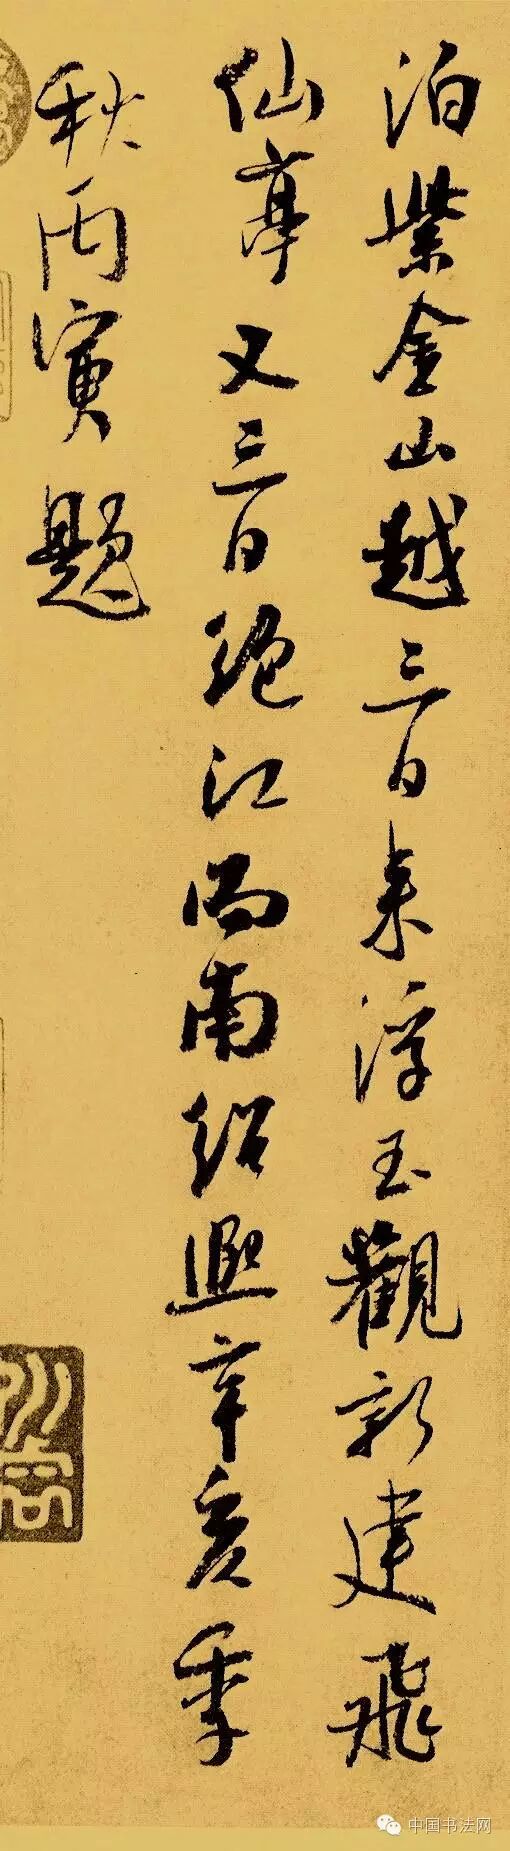 泊紫金山越三日来浮玉觀新建飛
仙亭又三日絶江而南紹熙辛亥季
秋丙寅題
中国书法网